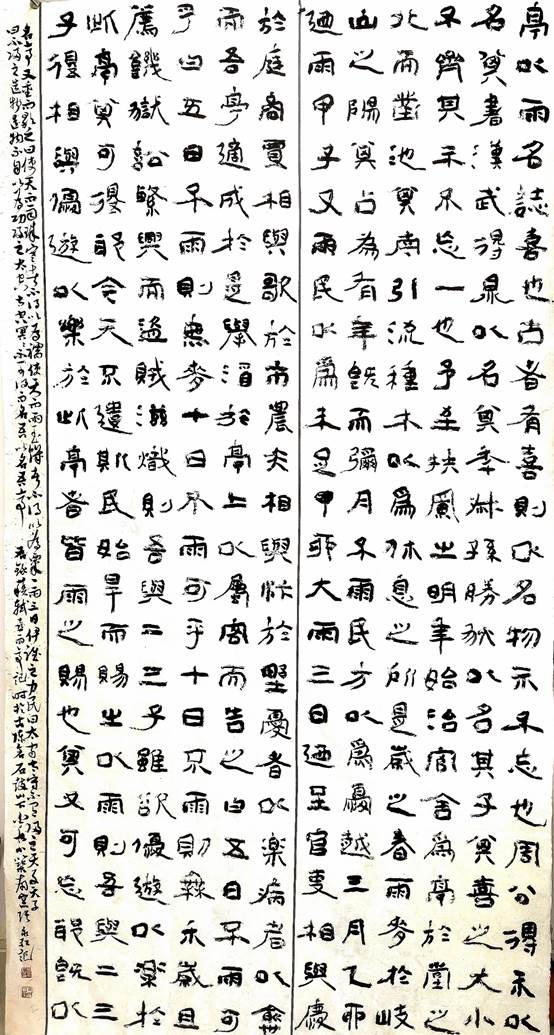 亭以雨名誌喜也古者有喜則以名物示不忘也周公得禾以
名其書漢武得鼎以名其年叔孫勝狄以名其子其喜之大小
不齊其示不忘一也予至扶風之明年始治官舍為亭於堂之
北而鑿池其南引流種木以為休息之所是歲之春雨麥於岐
山之陽其占為有年既而彌月不雨民方以為憂越三月乙卯
廼雨甲子又雨民以為未足甲卯大雨三日廼止官吏相與慶
於庭商賈相與歌於市農夫相與忭於野憂者以樂病者以愈
而吾亭適成於是舉酒於亭上以屬客而告之曰五日不雨可
乎曰五日不雨則無麥十日不雨可乎十日不雨則無禾歲且
薦饑獄訟繁興而盜賊滋熾則吾與二三子雖欲優遊以樂於
此亭其可得耶今天不遺斯民始旱而賜之以雨則吾與二三
子得相與優遊以樂於此亭者皆雨之賜也其又可忘耶既以
名亭又重而歌之曰使天而雨珠寒者不得以為襦使天而雨玉饑者不得以為粟一雨三日伊誰之力民曰太守太守不有歸之天子天子
曰不歸之造物造物不自以為功歸之太空太空冥冥不可得而名吾以名吾亭 右錄蘇軾喜雨亭記 時於古陳倉石鼓山下